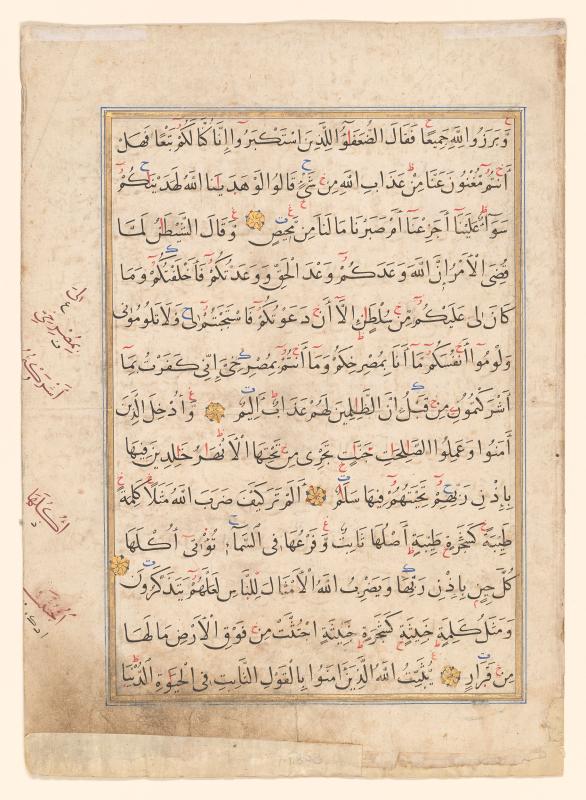 وَبَرَزُوا لِلَّهِ جَمِيعًا فَقَالَ الضُّعَفَٰٓؤُا لِلَّذِينَ اسْتَكْبَرُوا إِنَّا كُنَّا لَكُمْ تَبَعًا فَهَلْ
أَنتُم مُّغْنُونَ عَنَّا مِنْ عَذَابِ اللَّهِ مِن شَىْءٍ قَالُوا لَوْ هَدَٰينَا اللَّهُ لَهَدَيْنَٰكُمْ
سَوَآءٌ عَلَيْنَآ أَجَزِعْنَآ أَمْ صَبَرْنَا مَا لَنَا مِن مَّحِيصٍ وَقَالَ الشَّيْطَٰنُ لَمَّا
قُضِىَ الْأَمْرُ إِنَّ اللَّهَ وَعَدَكُمْ وَعْدَ الْحَقِّ وَوَعَدتُّكُمْ فَأَخْلَفْتُكُمْ وَمَا
كَانَ لِىَ عَلَيْكُم مِّن سُلْطَٰنٍ إِلَّآ أَن دَعَوْتُكُمْ فَاسْتَجَبْتُمْ لِى فَلَا تَلُومُونِى
وَلُومُوٓا أَنفُسَكُم مَّآ أَنَا بِمُصْرِخِكُمْ وَمَآ أَنتُم بِمُصْرِخِىَّ إِنِّى كَفَرْتُ بِمَآ
أَشْرَكْتُمُونِ مِن قَبْلُ إِنَّ الظَّٰلِمِينَ لَهُمْ عَذَابٌ أَلِيمٌ وَأُدْخِلَ الَّذِينَ
آمَنُوا وَعَمِلُوا الصَّٰلِحَٰتِ جَنَّٰتٍ تَجْرِى مِن تَحْتِهَا الْأَنْهَٰرُ خَالِدِينَ فِيهَا
بِإِذْنِ رَبِّهِمْ تَحِيَّتُهُمْ فِيهَا سَلَٰمٌ أَلَمْ تَرَ كَيْفَ ضَرَبَ اللَّهُ مَثَلًا كَلِمَةً
طَيِّبَةً كَشَجَرَةٍ طَيِّبَةٍ أَصْلُهَا ثَابِتٌ وَفَرْعُهَا فِى السَّمَآءِ تُؤْتِىٓ أُكُلَهَا
كُلَّ حِينٍ بِإِذْنِ رَبِّهَا وَيَضْرِبُ اللَّهُ الْأَمْثَالَ لِلنَّاسِ لَعَلَّهُمْ يَتَذَكَّرُونَ
وَمَثَلُ كَلِمَةٍ خَبِيثَةٍ كَشَجَرَةٍ خَبِيثَةٍ اجْتُثَّتْ مِن فَوْقِ الْأَرْضِ مَا لَهَا
مِن قَرَارٍ يُثَبِّتُ اللَّهُ الَّذِينَ آمَنُوا بِالْقَوْلِ الثَّابِتِ فِى الْحَيَوٰةِ الدُّنْيَا
أُكُلَهَا